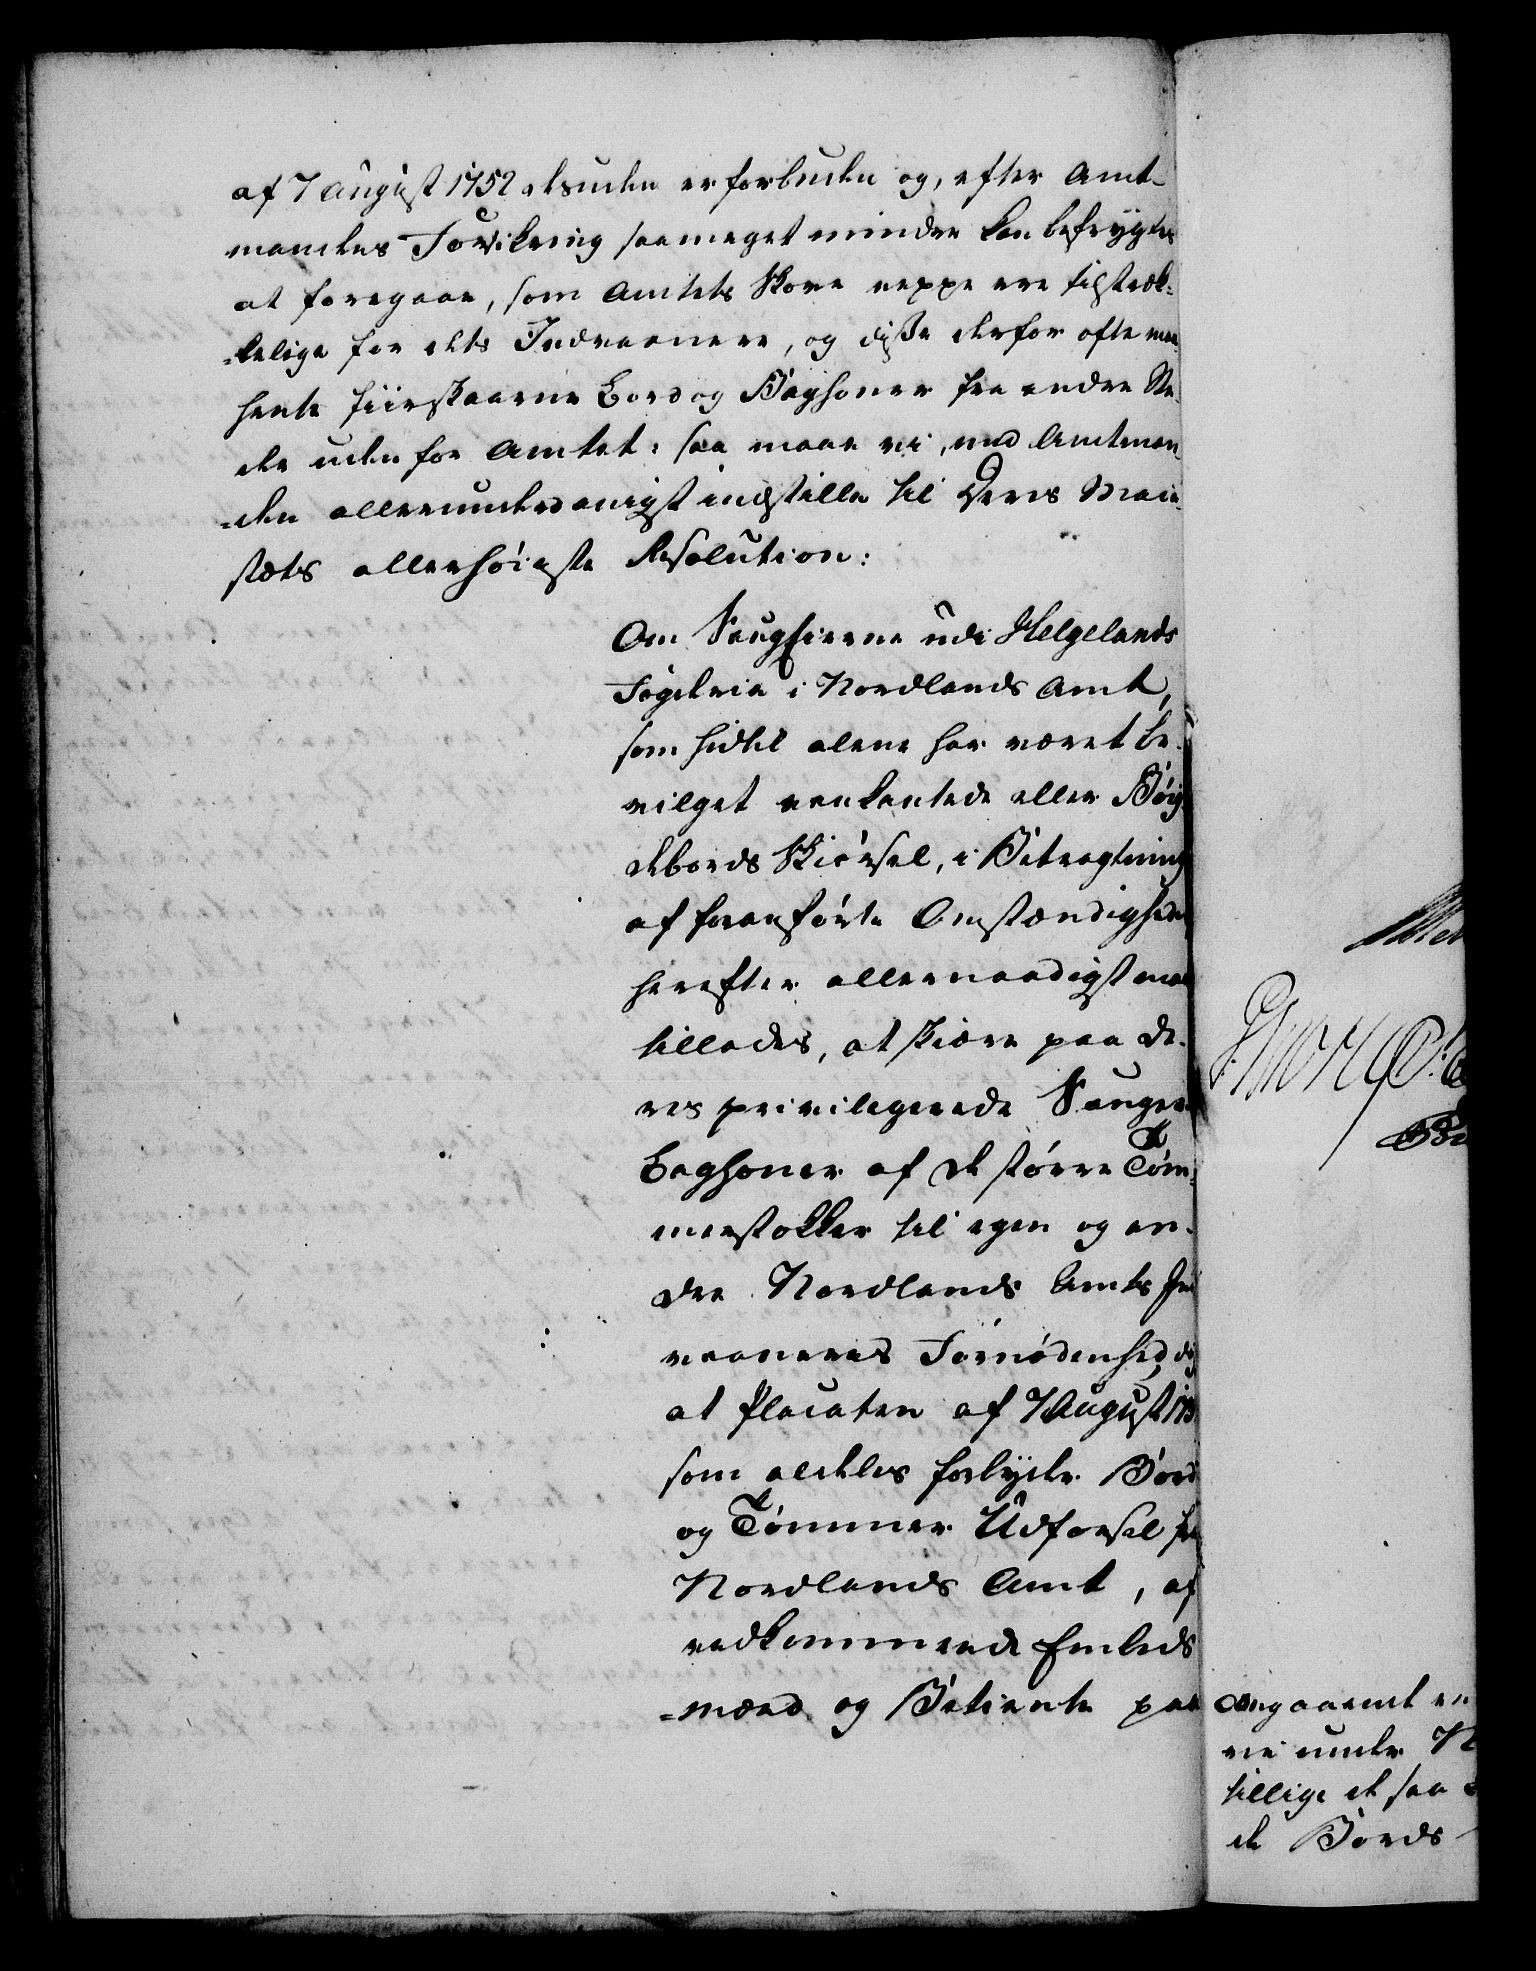 af 7 August 1752 desuden er forbuden og, efter Amt-
mandens Forsikring saameget mindre kan befrygtes
at foregaae, som Amtets Skove neppe ere tilstræk-
-kelige for dets Indvaanere, og disse derfor ofte maae
hente fiirskaarne Bord og Baghoner fra andre Ste-
der uden for Amtet: saa maae vi, med Amtman-
-den allerunderdanigst indstille til Deres Maie-
stæts allerhøieste Resolution:
Om Saugeierne udi Helgelands
Fogderie i Nordlands Amt,
som hidtil alene har været be-
vilget vankantede eller Bøig-
debords Skiørsel, i Betragtning
af foranførte Omstændigheder
herefter allernaadigst maae
tillades, at skiære paa de-
res privilegerede Sauger
Baghoner af de større Tøm-
merstokker til egen og an-
dre Nordlands Amts Ind
vaaneres Fornødenhed, og
at Placaten af 7 August 175
som aldeles forbyder Bord
og Tømmer Udførsel fra
Nordlands Amt, af
vedkommende Embeds
-mænd og Betiente paa
Angaaende en
vie under N
tillige et saa
de Bords